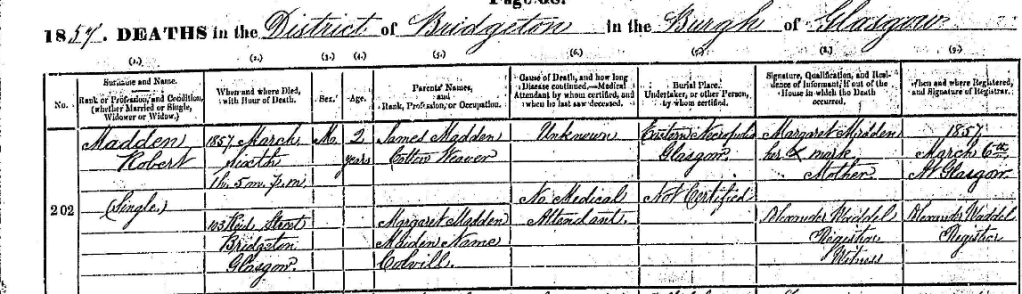 1857. DEATHS in the District of Bridgeton in the Burgh of Glasgow
(1.) (2.) (3.) (4.) (5.) (6.) (7.) (8.) (9.)
No.
Surname and Name.
Rank or Profession, and Condition,
(whether Married or Single,
Widower or Widow.)
When and where Died,
with Hour of Death.
Sex.
Age.
Parents' Names,
and
Rank, Profession, or Occupation.
Cause of Death, and how long
Disease continued,—Medical
Attendant by whom certified, and
when he last saw deceased.
Burial Place.
Undertaker, or other Person,
by whom certified.
Signature, Qualification, and Resi-
dence of Informant, if out of the
House in which the Death
occurred.
When and where Registered,
and Signature of Registrar.
202
Madden
Robert
(Single.)
1857 March
sixth
1h. 5m. p.m.
Street
Bridgeton
Glasgow.
M.
2
years
James Madden
Cotton Weaver
Margaret Madden
Maiden Name
Colvill.
Unknown
No Medical
Attendant.
Eastern Necropolis
Glasgow.
Not Certified
Margaret Madden
her X mark
Mother.
Alexander Waddel
Registrar
Witness
1857
March 6th
At Glasgow.
Alexander Waddel
Registrar